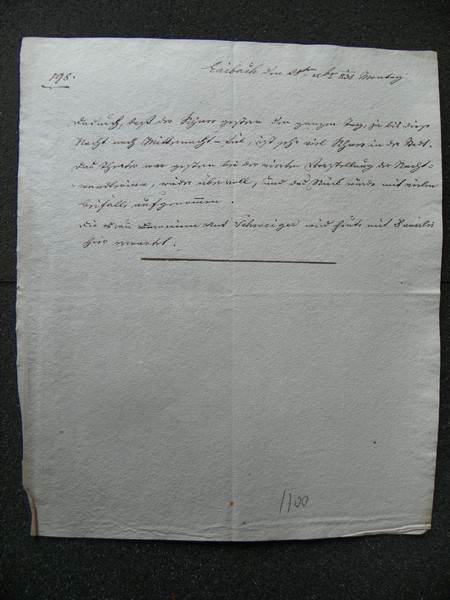 198.
Laibach den 2ten 838 Montag
Dadurch, daß der Schnee gestern den ganzen Tag, ja bis diese
Nacht nach Mitternacht fiel, ist sehr viel Schnee in der Stadt.
Das Theater war gestern bei der vierten Vorstellung der Nacht-
wandlerin, wieder übervoll, und das Stück wurde mit vielem
Beifalle aufgenommen.
Die Frau Baronin Schweiger wird heute mit Familie
hier erwartet.
1700